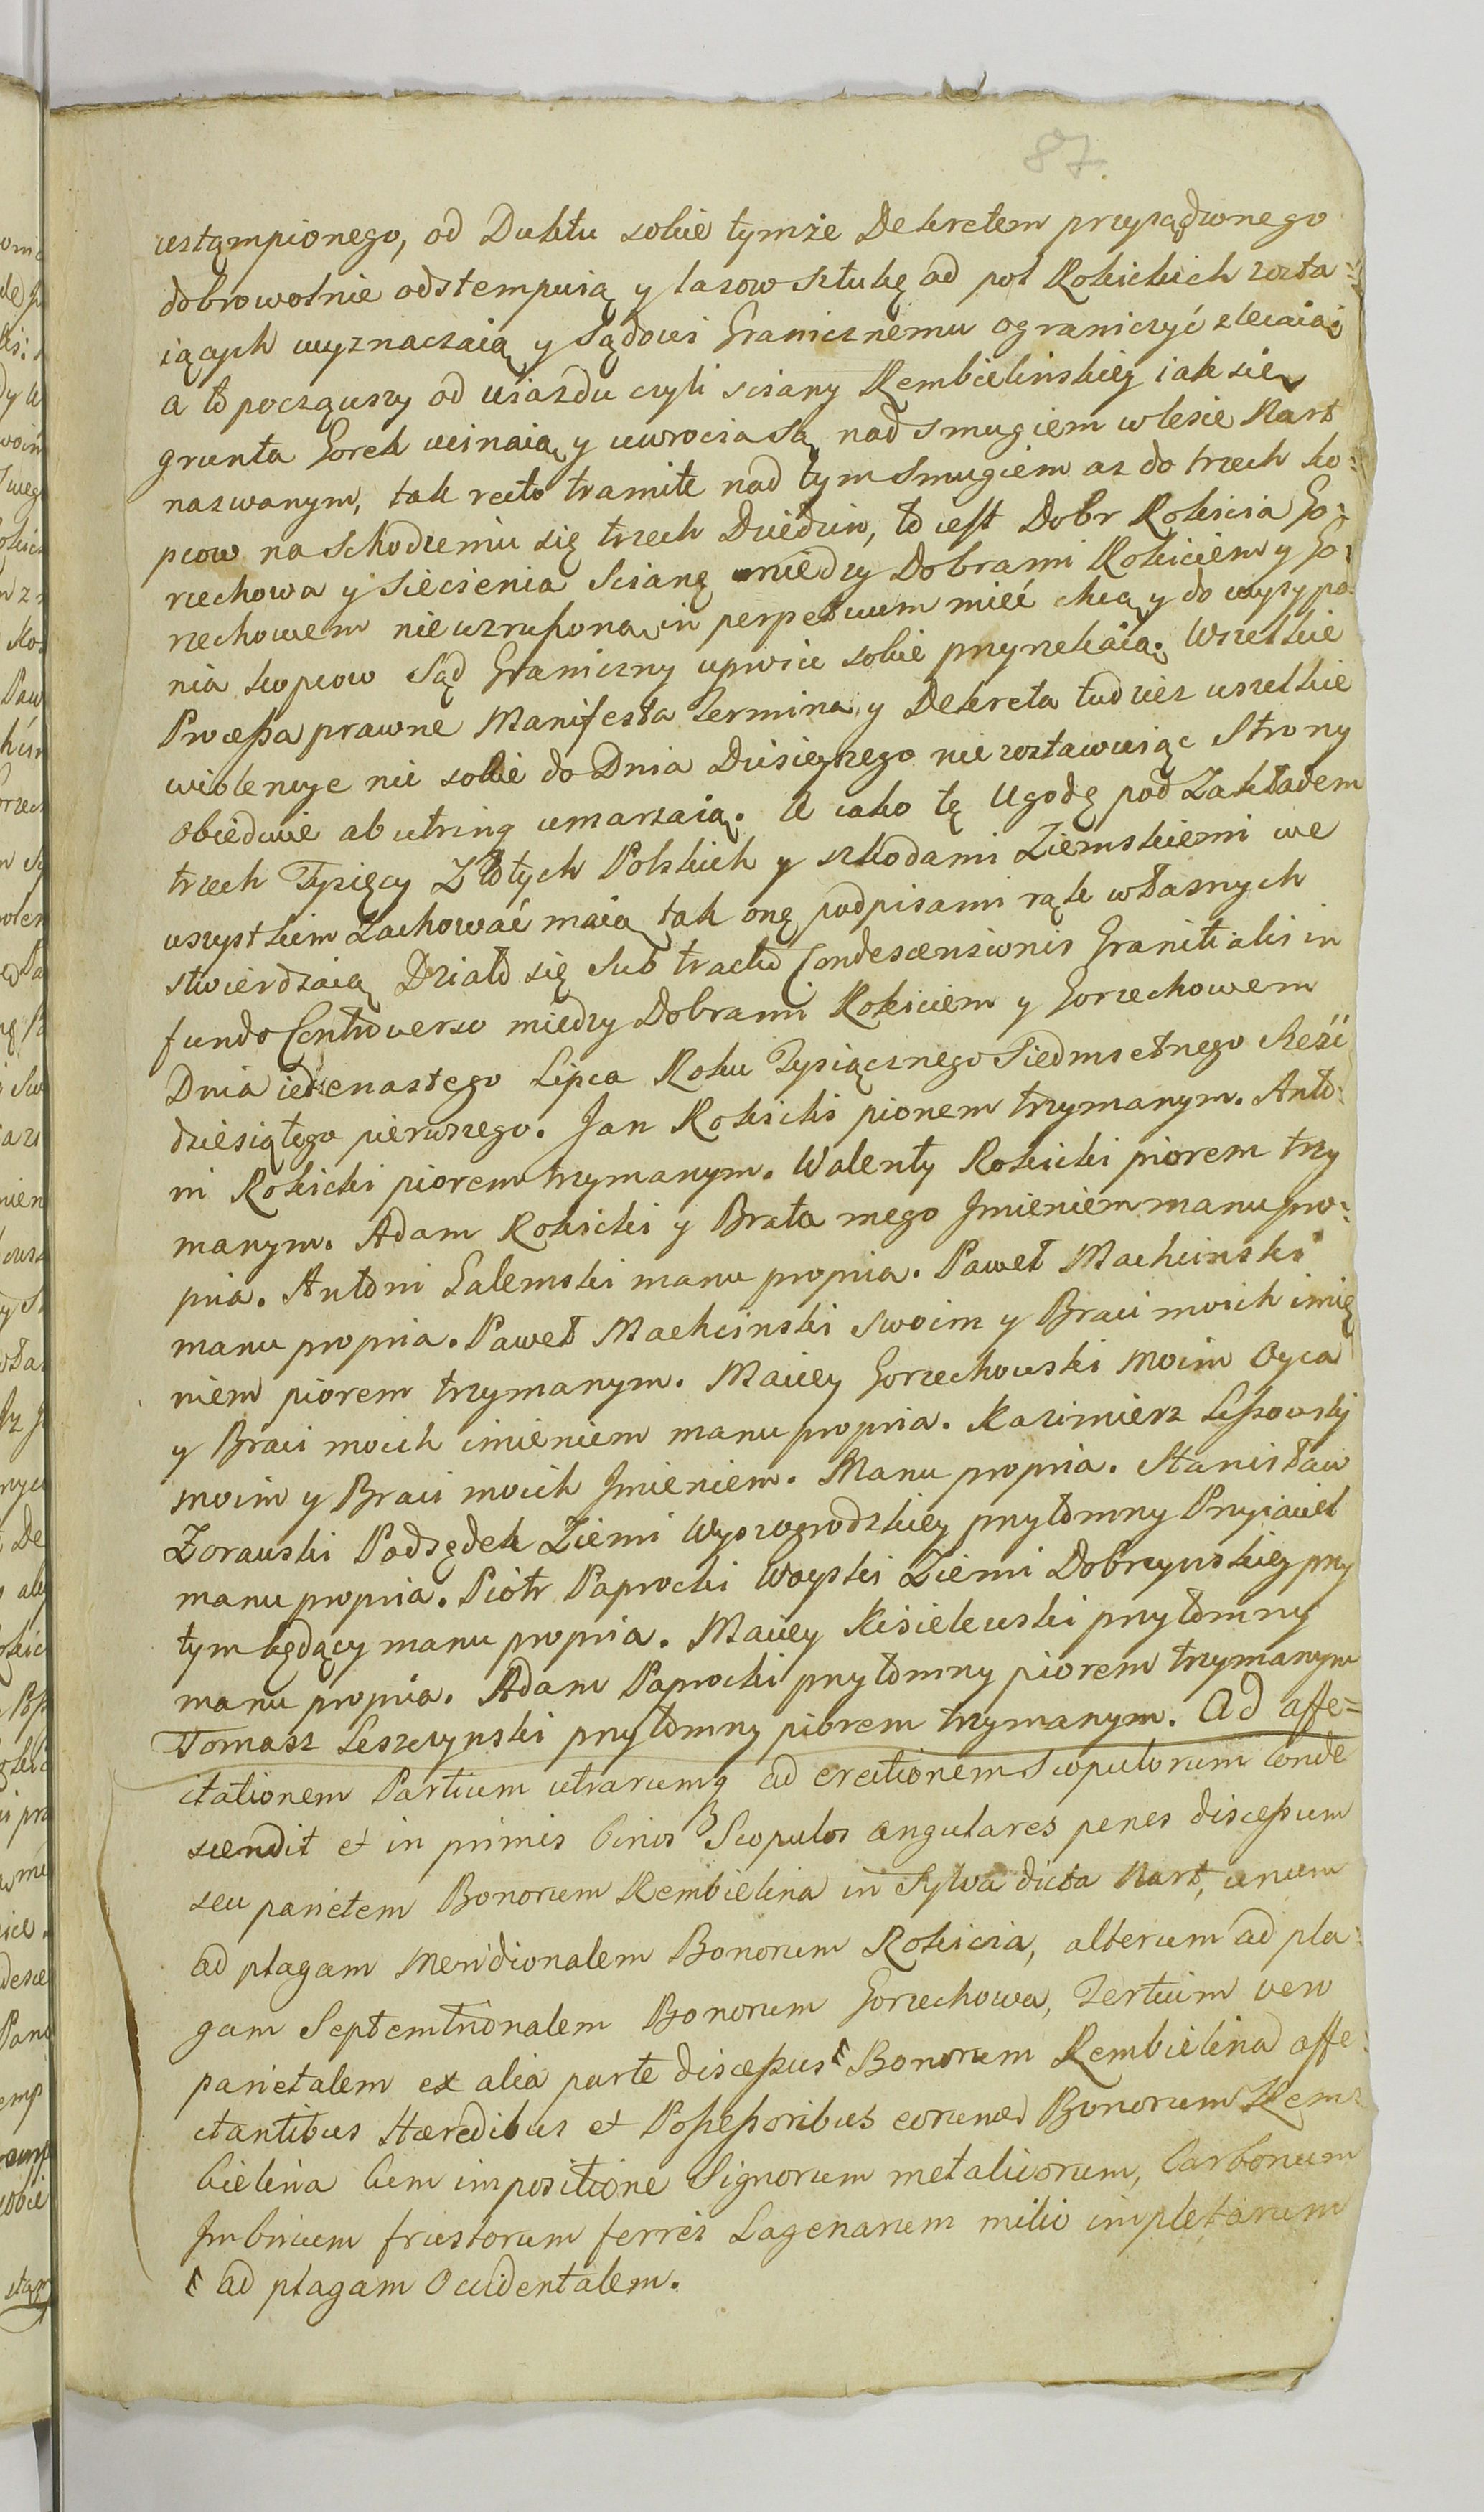 87.
ustąmpionego, od Duktu sobie tymże Dekretem przysądzonego
dobrowolnie odstempuią y lasow sztukę od pol Rokickich zosta=
iących wyznaczaią y Sądowi Granicznemu ograniczyć zlecaią
a to począwszy od uiazdu czyli sciany Rembielinskiey iak się
grunta Gorek ucinaią y uwrocia są nad smugiem w lesie Nart
nazwanym, tak recto tramite nad tym Smugiem az do trzech ko=
pcow na schodzeniu się trzech Dziedzin, to iest Dobr Rokicia Go=
rzechowa y Siecienia Scianę miedzy Dobrami Rokiciem y Go=
rzechowem niewzruszoną in perpetuum mieć chcą y do wysypa=
nia kopcow Sąd Graniczny uprosić sobie przyrzekaią. Wszelkie
Processa prawne Manifesta Termina y Dekreta tudziez wszelkie
wiolencye nie sobie do Dnia Dzisieyszego nie zostawuiąc Strony
obiedwie ab utrinq umarzaią. A iako tę Ugodę pod Zakładem
trzech Tysięcy Złotych Polskich y szkodami Ziemskiemi we
wszystkim Zachować maią tak onę podpisami rąk własnych
stwierdzaią Działo się Sub tractu Condescensionis Granitialis in
fundo Controverso miedzy Dobrami Rokiciem y Gorzechowem
Dnia iedenastego Lipca Roku Tysiącznego Siedmsetnego Sześć
dziesiątego pierwszego. Jan Rokicki piorem trzymanym. Anto=
ni Rokicki piorem trzymanym. Walenty Rokicki piorem trzy
manym. Adam Rokicki y Brata mego Jmieniem manu pro=
pria. Antoni Galemski manu propria. Paweł Machcinski
manu propria. Paweł Machcinski swoim y Braci moich imię
niem piorem trzymanym. Maciey Gorzechowski moim Oyca
y Braci moich imieniem manu propria. Kazimierz Lissowsky
moim y Braci moich Jmieniem. Manu propria. Stanisław
Zorawski Podsędek Ziemi Wyszogrodzkiey przytomny Przyiaciel
manu propria. Piotr Paprocki Woyski Ziemi Dobrzynskiey przy
tym będący manu propria. Maciey Kisielewski przytomny
manu propria. Adam Paprocki przytomny piorem trzymanym
Tomasz Leszczynski przytomny piorem trzymanym. Ad affe=
ctationem Partium utrarumq ad erectionem Scopulorum conde
scendit et in primis binos Scopulos angulares penes discessum
seu parietem Bonorum Rembielina in Sylva dicta Nart, unum
ad plagam Meridionalem Bonorum Rokicia, alterum ad pla=
gam Septemtrionalem Bonorum Gorzechowa, Tertium vero
parietalem ex alia parte discessus Bonorum Rembielina affe=
ctantibus Hæredibus et Possessoribus eorund Bonorum Rem=
bielina cum impositione Signorum metalicorum, Carbonum
Imbricum frustorum ferri Lagenarum milio impletarum
ad plagam Occidentalem.